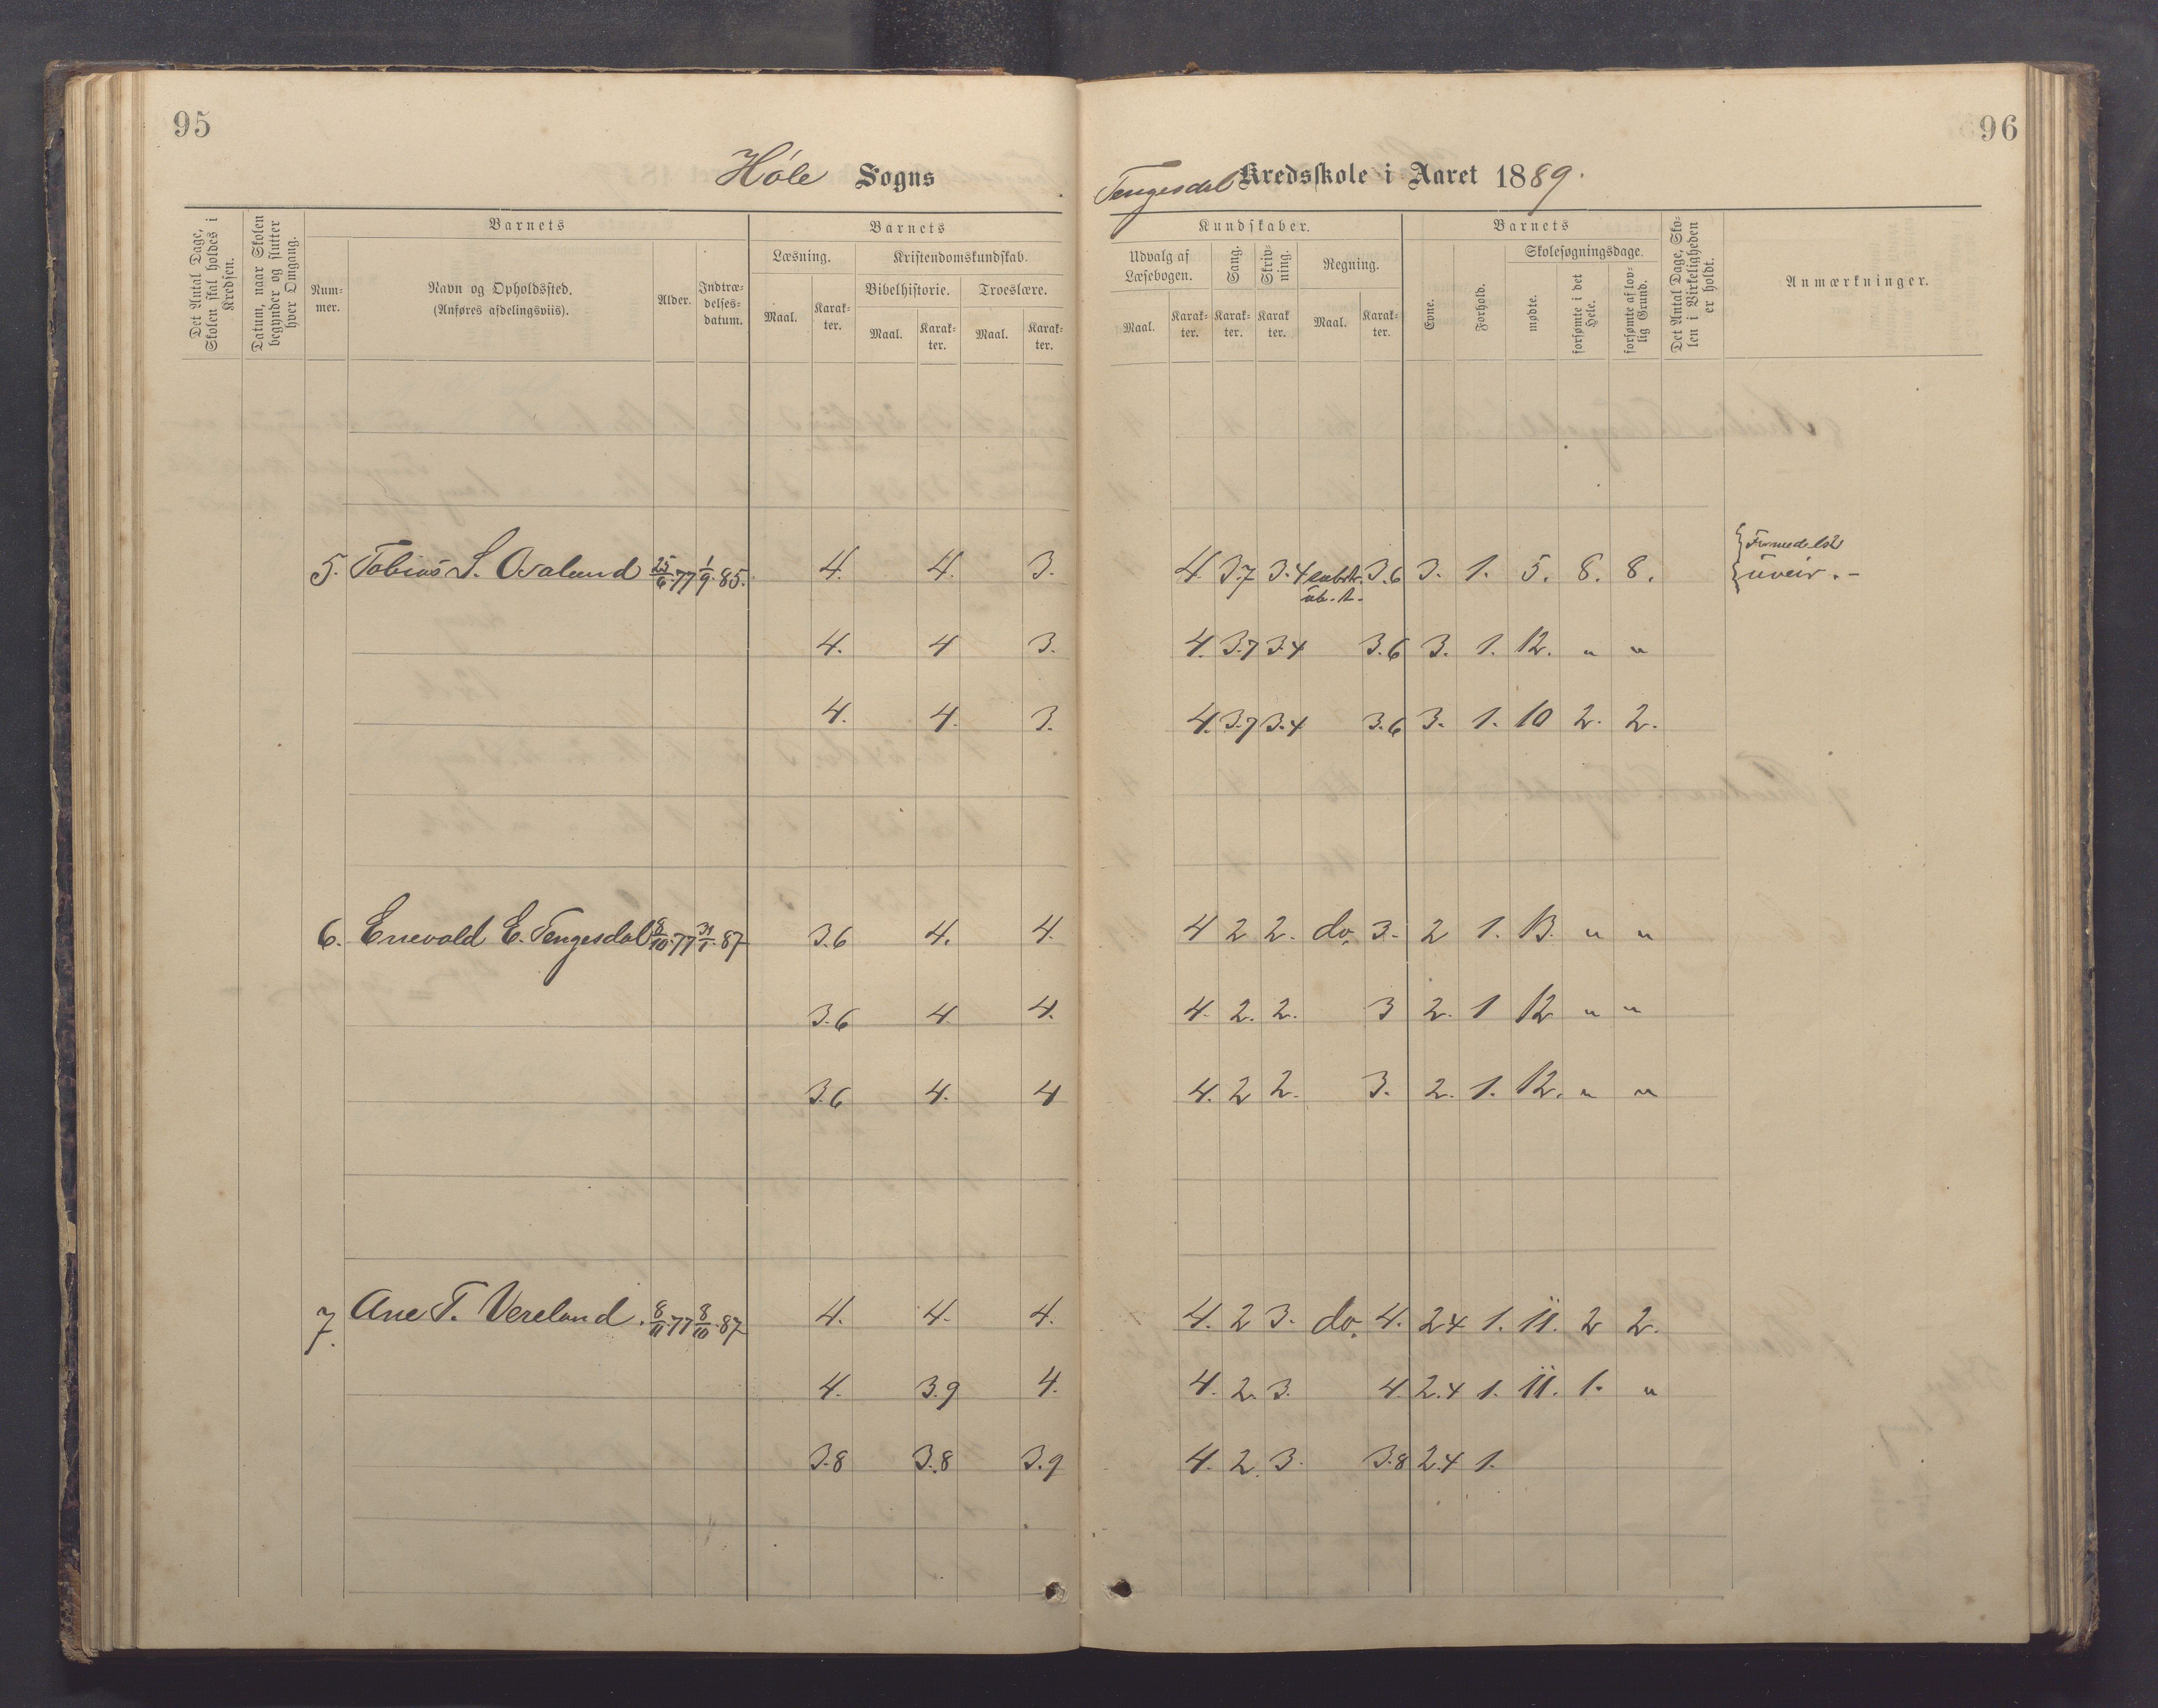 95
96
Høle Sogns
Tengesdal Kredsskole i Aaret 1889.
Det Antal Dage, Skolen skal holdes i Kredsen.
Datum, naar Skolen begynder og slutter hver Omgang.
Barnets
Num-mer.
Navn og Opholdssted.
(Anføres afdelingsviis).
Alder.
Indtræ-delses-datum.
Barnets
Læsning.
Maal.
Karak-ter.
Kristendomskundskab.
Bibelhistorie.
Maal.
Karak-ter.
Troeslære.
Maal.
Karak-ter.
Kundskaber.
Udvalg af Læsebogen.
Maal.
Karak-ter.
Sang.
Karak-ter.
Skriv-ning.
Karak ter.
Regning.
Maal.
Karak-ter.
Barnets
Evne.
Forhold.
Skolesøgningsdage.
mødte.
forsømte i det Hele.
forsømte af lov-lig Grund.
Det Antal Dage, Sko-len i Virkeligheden er holdt.
Anmærkninger.
5. Tobias S. Osaland 25/6.77 1/9.85. 4. 4. 3. 4. 3.7 3.4 subtr. 3.6 3. 1. 5. 8. 8. Formedelst
ub. t. uveir. –
4. 4 3. 4. 3.7 3.4 3.6 3. 1. 12. " "
4. 4. 3. 4. 3.7 3.4 3.6 3. 1. 10 2. 2.
6. Enevald E. Tengesdal 8/10.77 31/1.87 3.6 4. 4. 4 2 2. do. 3. 2 1. 13. " "
3.6 4. 4. 4. 2. 2. 3 2. 1 12 " "
3.6 4. 4 4. 2 2. 3. 2. 1. 12. " "
7. Ane T. Vereland. 8/11.77 8/10.87 4. 4. 4. 4. 2 3. do. 4. 2.4 1. 11. 2 2.
4. 3.9 4. 4. 2. 3. 4. 2.4 1. 11. 1. "
3.8 3.8 3.9 4. 2. 3. 3.8 2.4 1.